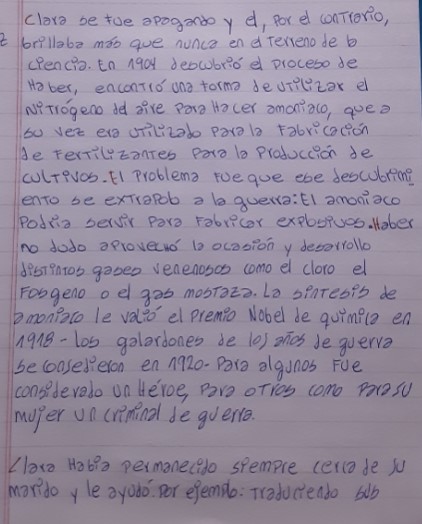 Clara se fue apagando y el, por el contrario,
brillaba más que nunca en el Terreno de la
ciencia. En 1904 descubrió el proceso de
Haber, encontró una forma de utilizar el
Nitrógeno del aire para Hacer amoniaco, que a
su vez era utilizado para la Fabricación
de Fertilizantes para la Producción de
culTivos. El Problema Fue que ese descubrimi
ento se extrapoló a la guerra: El amoniaco
Podría servir para Fabricar explosivos. Haber
no dudo aprovechó la ocasión y desarrollo
distintos gases venenosos como el cloro el
Fosgeno o el gas mostaza. La sintesis de
amoniaco le valió el premio Nobel de química en
1918 - los galardones de los años de guerra
se consedieron en 1920 - Para algunos Fue
considerado un Héroe, para otros como para su
mujer un criminal de guerra.
Clara Había permanecido siempre cerca de su
marido y le ayudó. Por ejemplo: Traduciendo sus